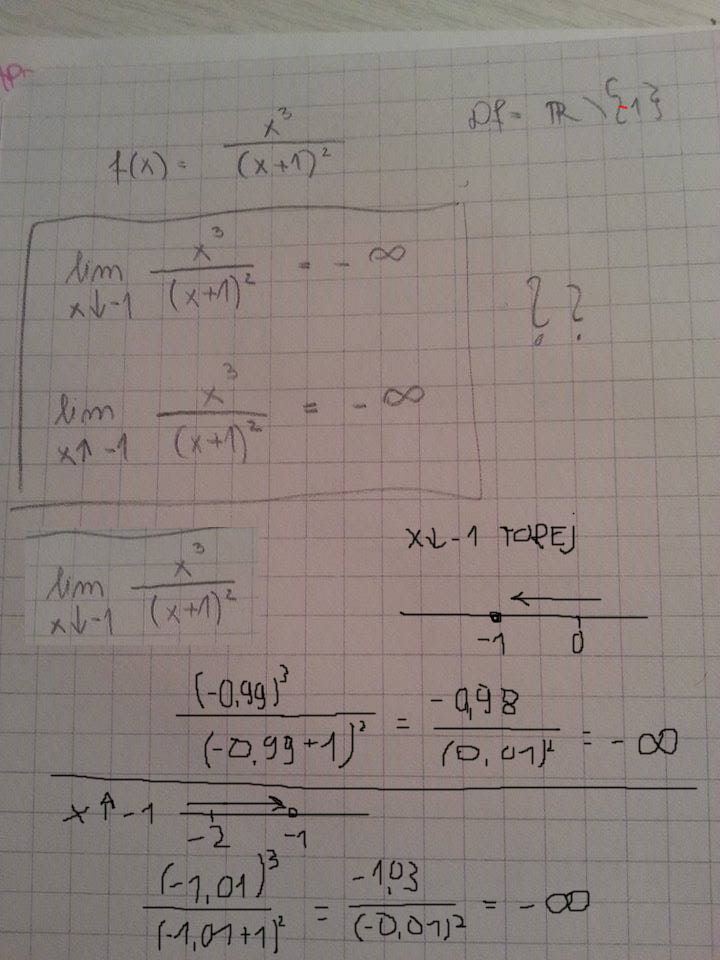 f(x) = x³/(x+1)²
Df = ℝ \ {-1}
lim x↓-1 x³/(x+1)² = -∞
??
lim x↑-1 x³/(x+1)² = -∞
lim x↓-1 x³/(x+1)²
x↓-1 TOREJ
-1 0
(-0,99)³/(-0,99+1)² = -0,98/(0,01)² = -∞
x↑-1
-2 -1
(-1,01)³/(-1,01+1)² = -1,03/(-0,01)² = -∞